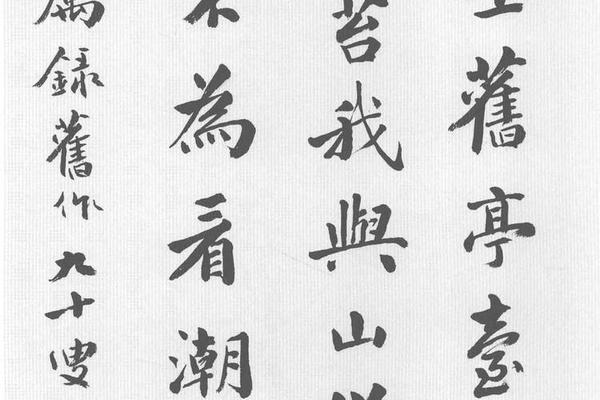 舊亭臺
苔我與山
不為看潮
屬錄舊作九十叟